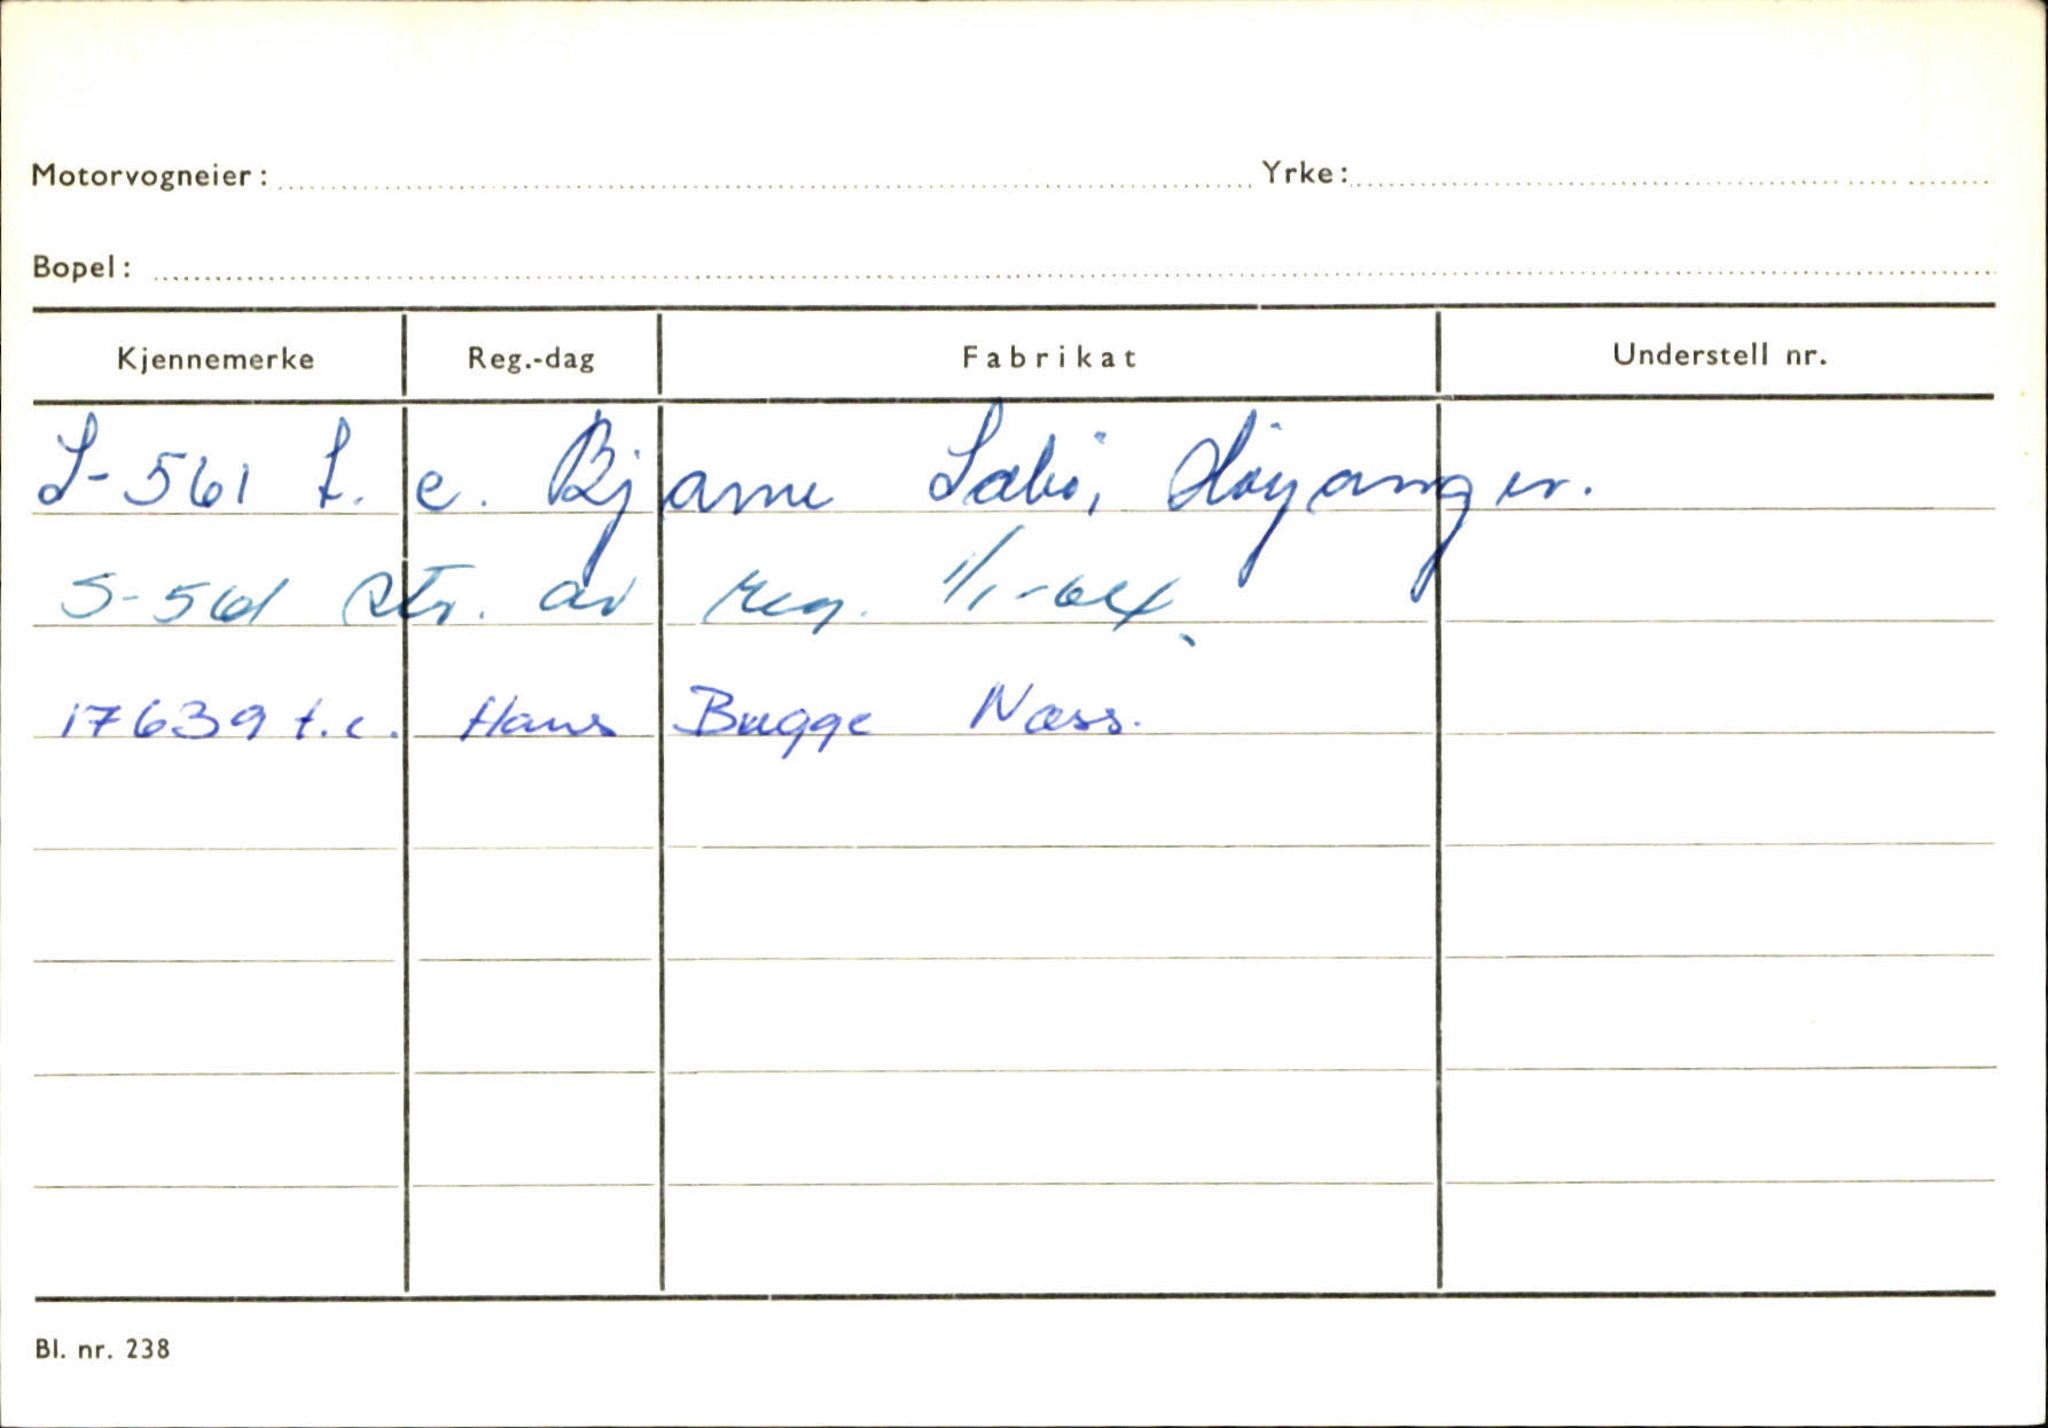 Motorvogneier: Yrke:
Bopel:
Kjennemerke Reg.-dag Fabrikat Understell nr.
S-561 t. e. Bjarne Sæbø, Høyanger.
S-561 str. av reg. 1/1-64
17639 t.e. Hans Bugge Næss.
Bl. nr. 238